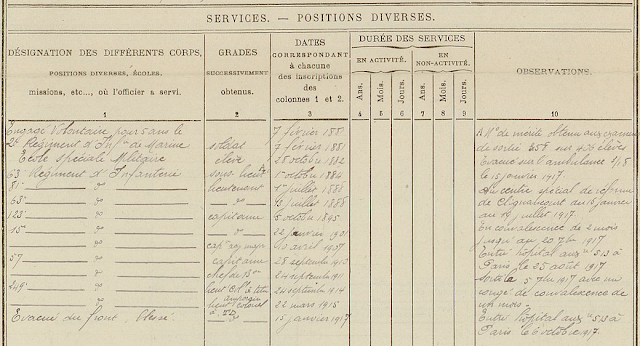 SERVICES. — POSITIONS DIVERSES.
DÉSIGNATION DES DIFFÉRENTS CORPS,
POSITIONS DIVERSES, ÉCOLES,
missions, etc..., où l'officier a servi.
GRADES
SUCCESSIVEMENT
obtenus.
DATES
CORRESPONDANT
à chacune
des inscriptions
des
colonnes 1 et 2.
DURÉE DES SERVICES
EN ACTIVITÉ.
EN
NON-ACTIVITÉ.
Ans.
Mois.
Jours.
Ans.
Mois.
Jours.
OBSERVATIONS.
1 2 3 4 5 6 7 8 9 10
Engagé Volontaire pour 5 ans le 7 février 1881
2e Régiment d'Infie de Marine soldat 7 février 1881
École Spéciale Militaire élève 28 octobre 1882
63 Régiment d'Infanterie sous-lieut 1 octobre 1884
81 lieutenant 1 juillet 1888
63 juillet 1888
123 capitaine 5 octobre 1895
15 22 janvier 1901
avril 1907
57 capitaine 28 septembre 1910
chef de Bon 24 septembre 1911
249 24 septembre 1914
lieut colonel 22 mars 1915
Évacué du front Blessé 15 janvier 1917
No de mérite obtenu aux examens
de sortie 358 sur 406 élèves
Évacué sur ambulance 1/8
le 15 janvier 1917.
Au centre spécial de réforme
de Clignancourt du janvier
au 19 juillet 1917
En convalescence de 2 mois
jusqu'au 20 7bre 1917
Entré hôpital aux no 513 à
Paris le 25 août 1917
Sorti le 5 7bre 1917 avec un
congé de convalescence de
un mois.
Entré hôpital aux no 513 à
Paris le 6 octobre 1917.